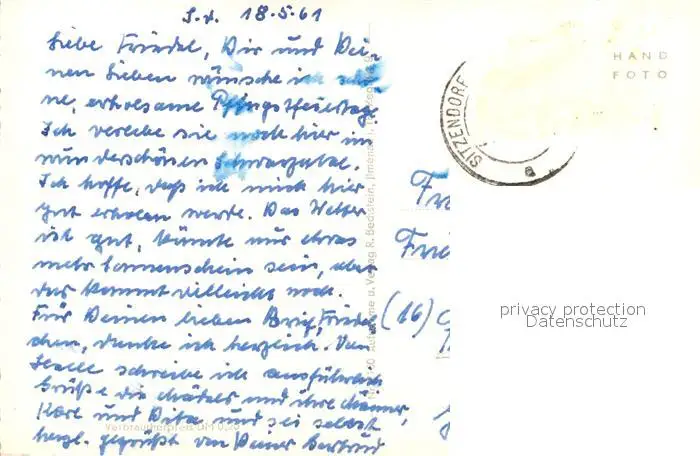 S.d. 18.5.61
Liebe Friedel, Dir und Dei-
nen Lieben wünsche ich schö-
ne, erholsame Pfingstfeiertage.
Ich verlebe sie noch hier im
wunderschönen Schwarzatal.
Ich hoffe, daß ich mich hier
gut erholen werde. Das Wetter
ist gut, könnte nur etwas
mehr Sonnenschein sein, aber
das kommt vielleicht noch.
Für Deinen lieben Brief, Friedel-
chen, danke ich herzlich. Von
Halle schreibe ich ausführlich
Grüße die Mädels und ihre Männer,
Karl und Rita und sei selbst
herzl. gegrüßt von Deiner Gertrud
Verbraucherpreis DM 0,20
Aufnahme u. Verlag R. Bechstein, Ilmenau
HAND
FOTO
SITZENDORF
a
(16)
privacy protection
Datenschutz